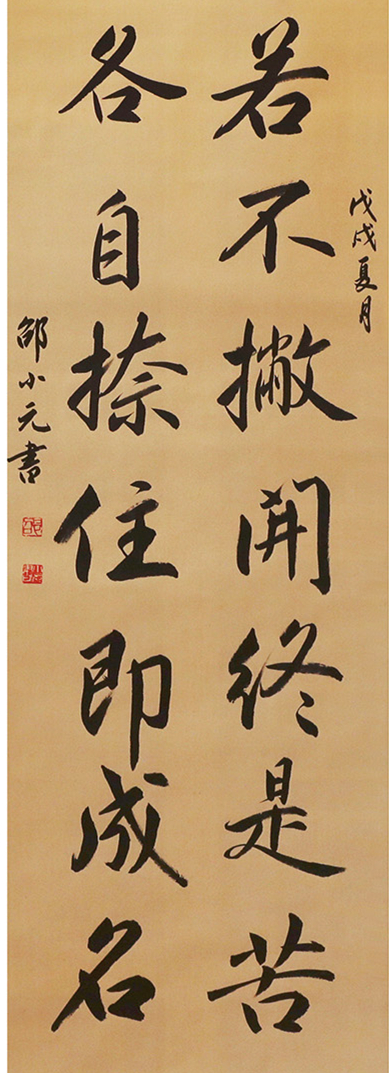 戊戌夏月
若不撇開終是苦
各自捺住即成名
邵小元書